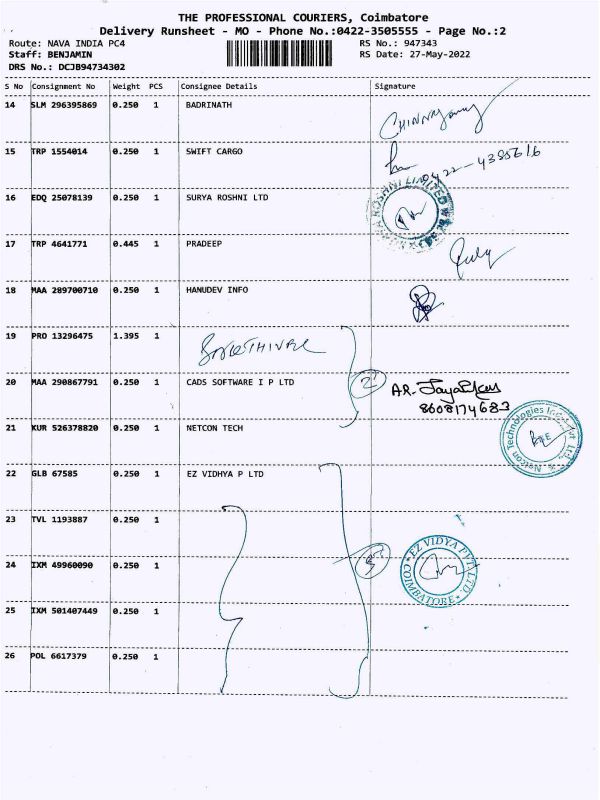 THE PROFESSIONAL COURIERS, Coimbatore
Delivery Runsheet - MO - Phone No.:0422-3505555 - Page No.:2
Route: NAVA INDIA PC4 RS No.: 947343
Staff: BENJAMIN RS Date: 27-May-2022
DRS No.: DCJB94734302
S No Consignment No Weight PCS Consignee Details Signature
14 SLM 296395869 0.250 1 BADRINATH
15 TRP 1554014 0.250 1 SWIFT CARGO
16 EDQ 25078139 0.250 1 SURYA ROSHNI LTD
ROSHNI LIMITED
17 TRP 4641771 0.445 1 PRADEEP
18 MAA 289700710 0.250 1 HANUDEV INFO
19 PRO 13296475 1.395 1
20 MAA 290867791 0.250 1 CADS SOFTWARE I P LTD 2
8608174683
21 KUR 526378820 0.250 1 NETCON TECH
Netcon Technologies
22 GLB 67585 0.250 1 EZ VIDHYA P LTD
23 TVL 1193887 0.250 1
24 IXM 49960090 0.250 1 5
EZ VIDYA PVT. LTD. COIMBATORE
25 IXM 501407449 0.250 1
26 POL 6617379 0.250 1